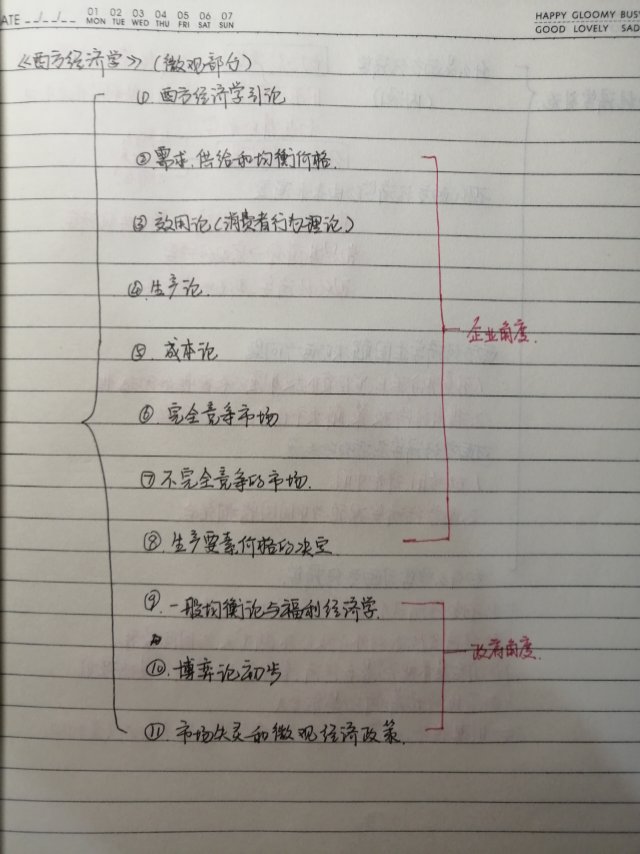 ATE __/__/__ 01 02 03 04 05 06 07 HAPPY GLOOMY BUSY
MON TUE WED THU FRI SAT SUN GOOD LOVELY SAD
《西方经济学》(微观部分)
① 西方经济学引论
② 需求、供给和均衡价格.
③ 效用论(消费者行为理论)
④ 生产论.
企业角度.
⑤ 成本论
⑥ 完全竞争市场
⑦ 不完全竞争的市场.
⑧ 生产要素价格的决定
⑨. 一般均衡论与福利经济学.
政府角度.
⑩. 博弈论初步
⑪. 市场失灵和微观经济政策.